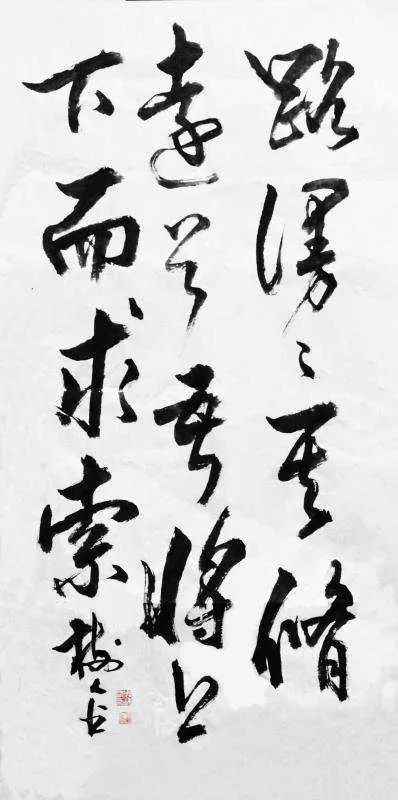 路漫〻其脩
遠兮吾將上
下而求索